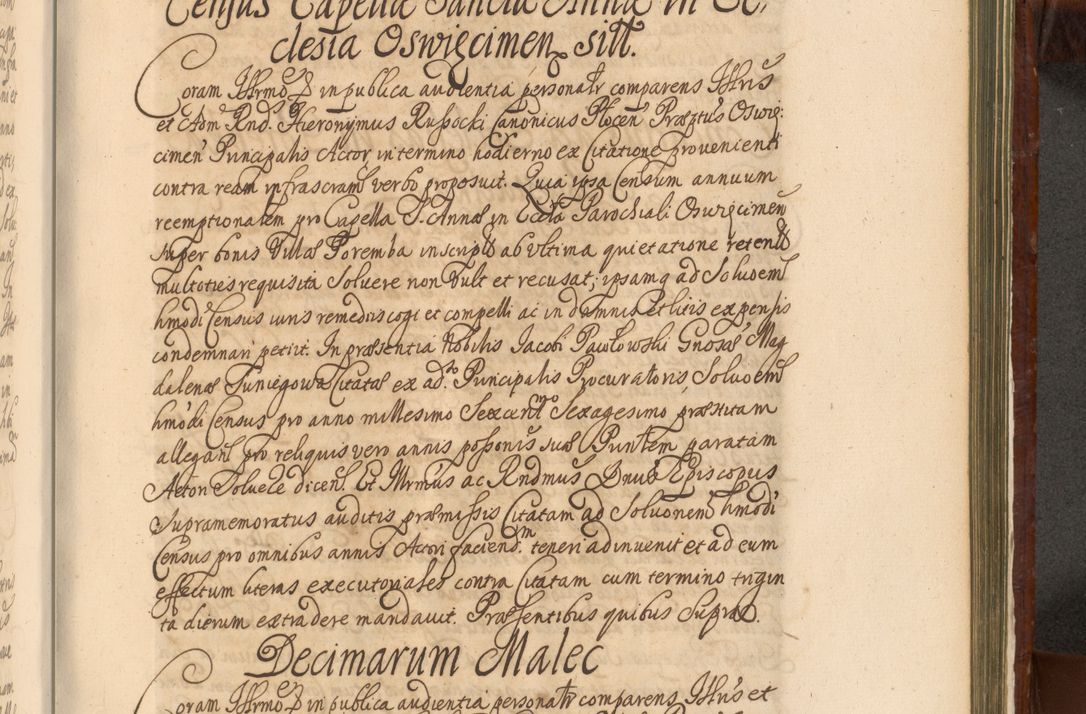 Census Capellæ Sanctæ Annæ in Ec,
clesia Oswięcimen sitt.
Coram Illrmo D in publica audientia personalr comparens Illris
et Adm Rnd. Hieronymus Russocki Canonicus Plocen Præptus Oswię:
cimen Principalis Actor in termino hodierno ex Citatione provenienti
contra ream infrascram verbo proposuit. Quia ipsa Censum annuum
reemptionalem pro Capella S. Annæ in Eccla Parochiali Oswięcimen
super bonis Villæ Poremba inscript ab Vltima quietatione retent
multoties requisita Soluere non Vult et recusat; ipsamq ad Soluoem
hmodi Census iuris remediis cogi et compelli ac in damnis et litis expensis
condemnari petiit. In præsentia Nobilis Jacobi Pawłowski Gnosæ Mag
dalenæ Citatæ ex ad. Principalis Procuratoris Soluoem
hmodi Census pro anno millesimo Sexcentmo Sexagesimo præstitam
allegan pro reliquis vero annis possonis suæ Puntem paratam
Actori Soluere dicen. Et Illrmus ac Rndmus Dnus Episcopus
supramemoratus auditis præmissis Citatam ad Soluonem hmodi
Census pro omnibus annis Actori faciendm teneri adinuenit et ad eum
effectum literas executoriales contra Citatam cum termino trigin
ta dierum extradere mandauit. Præsentibus quibus Supra.
Decimarum Malec
Coram Illrmo D in publica audientia personalr comparens Illris et